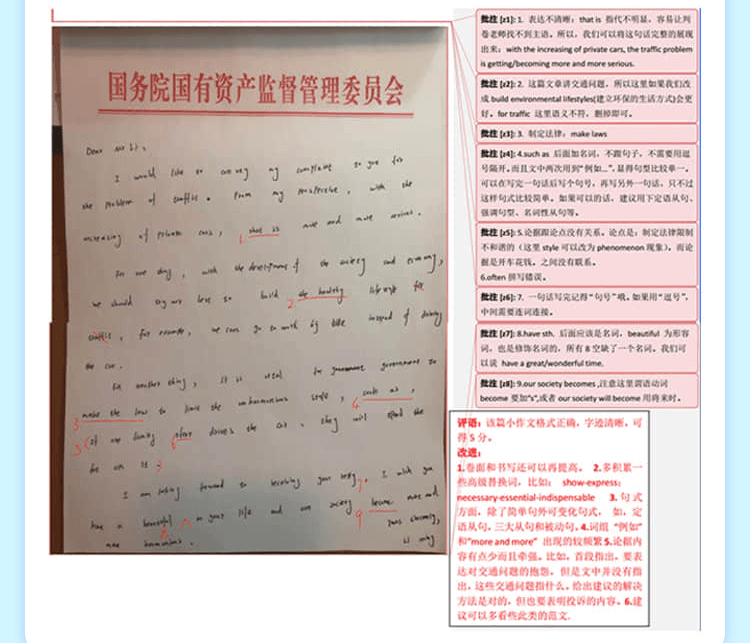 国务院国有资产监督管理委员会
Dear Mr Li,
I would like to convey my complaint to you for
the problem of traffic. From my perspective, with the
increasing of private cars, that is more and more serious.
1
For one thing, with the development of the society and economy,
we should try our best to build the healthy lifestyle for
2
traffic, for example, we can go to work by bike instead of driving
the car.
For another thing, it is vital for government to
make the law to limit the unharmonious style, such as,
3 4
if one family drives the car, they will spend the
5 6
fee on it.
I am looking forward to receiving your reply, I wish you
7
have a beautiful in your life and our society become more and
8 9
more harmonious.
Yours sincerely,
Li Ming
批注 [z1]: 1. 表达不清晰:that is 指代不明显,容易让判
卷老师找不到主语。所以,我们可以将这句话完整的展现
出来:with the increasing of private cars, the traffic problem
is getting/becoming more and more serious.
批注 [z2]: 2. 这篇文章讲交通问题,所以这里如果我们改
成 build environmental lifestyles(建立环保的生活方式)会更
好。for traffic 这里语义不符,删掉即可。
批注 [z3]: 3. 制定法律:make laws
批注 [z4]: 4.such as 后面加名词,不跟句子,不需要用逗
号隔开。而且文中两次用到“例如...”,显得句型比较单一。
可以在写完一句话后写个句号,再写另外一句话,只不过
这样句式比较简单。如果可以的话,建议用下定语从句、
强调句型、名词性从句等。
批注 [z5]: 5.论据跟论点没有关系。论点是:制定法律限制
不和谐的(这里 style 可以改为 phenomenon 现象)。而论
据是开车花钱。之间没有联系。
6.often 拼写错误。
批注 [z6]: 7. 一句话写完记得“句号”哦。如果用“逗号”,
中间需要连词连接。
批注 [z7]: 8.have sth. 后面应该是名词,beautiful 为形容
词,也是修饰名词的,所有 8 空缺了一个名词。我们可
以说 have a great/wonderful time.
批注 [z8]: 9.our society becomes ,注意这里谓语动词
become 要加“s”,或者 our society will become 用将来时。
评语:该篇小作文格式正确,字迹清晰,可
得 5 分。
改进:
1.卷面和书写还可以再提高。 2.多积累一
些高级替换词,比如: show-express;
necessary-essential-indispensable 3.句式
方面,除了简单句外可变化句式, 如,定
语从句。三大从句和被动句。4.词组 “例如”
和“more and more” 出现的较频繁 5.论据内
容有点少而且牵强。比如,首段指出,要表
达对交通问题的抱怨,但是文中并没有指
出,这些交通问题指什么。给出建议的解决
方法是对的,但也要表明投诉的内容。6.建
议可以多看些此类的范文.